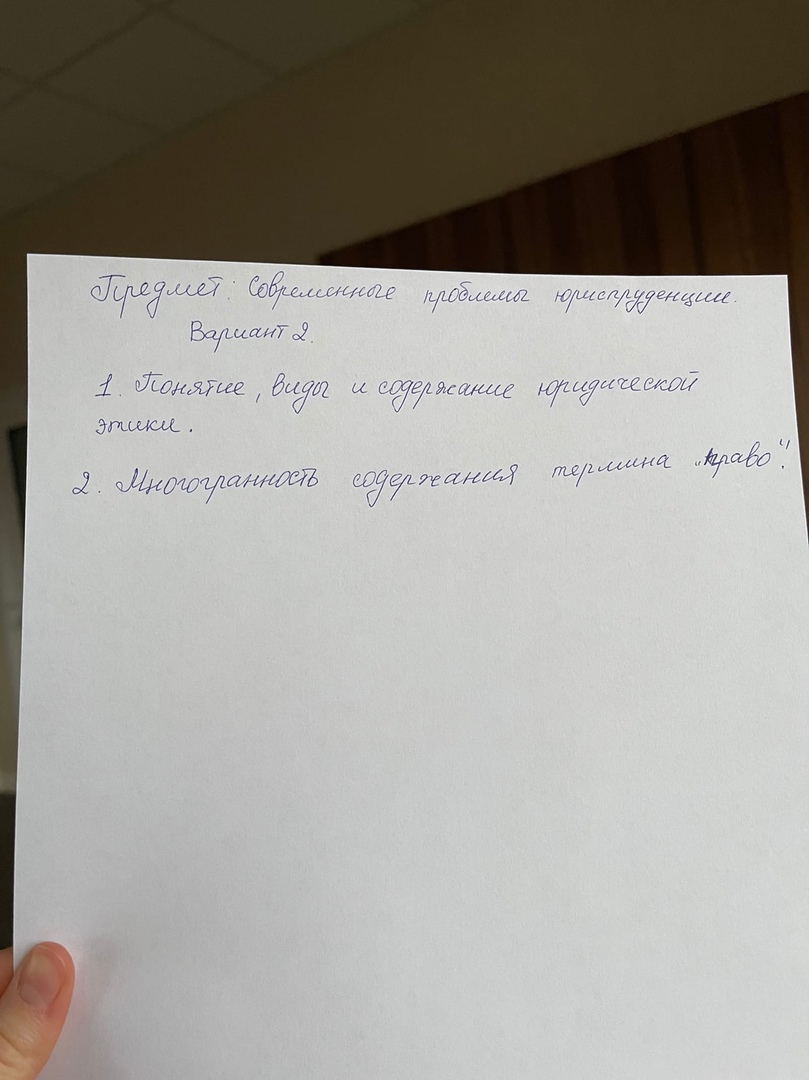 Предмет: Современные проблемы юриспруденции.
Вариант 2.
1. Понятие, виды и содержание юридической
этики.
2. Многогранность содержания термина „право".